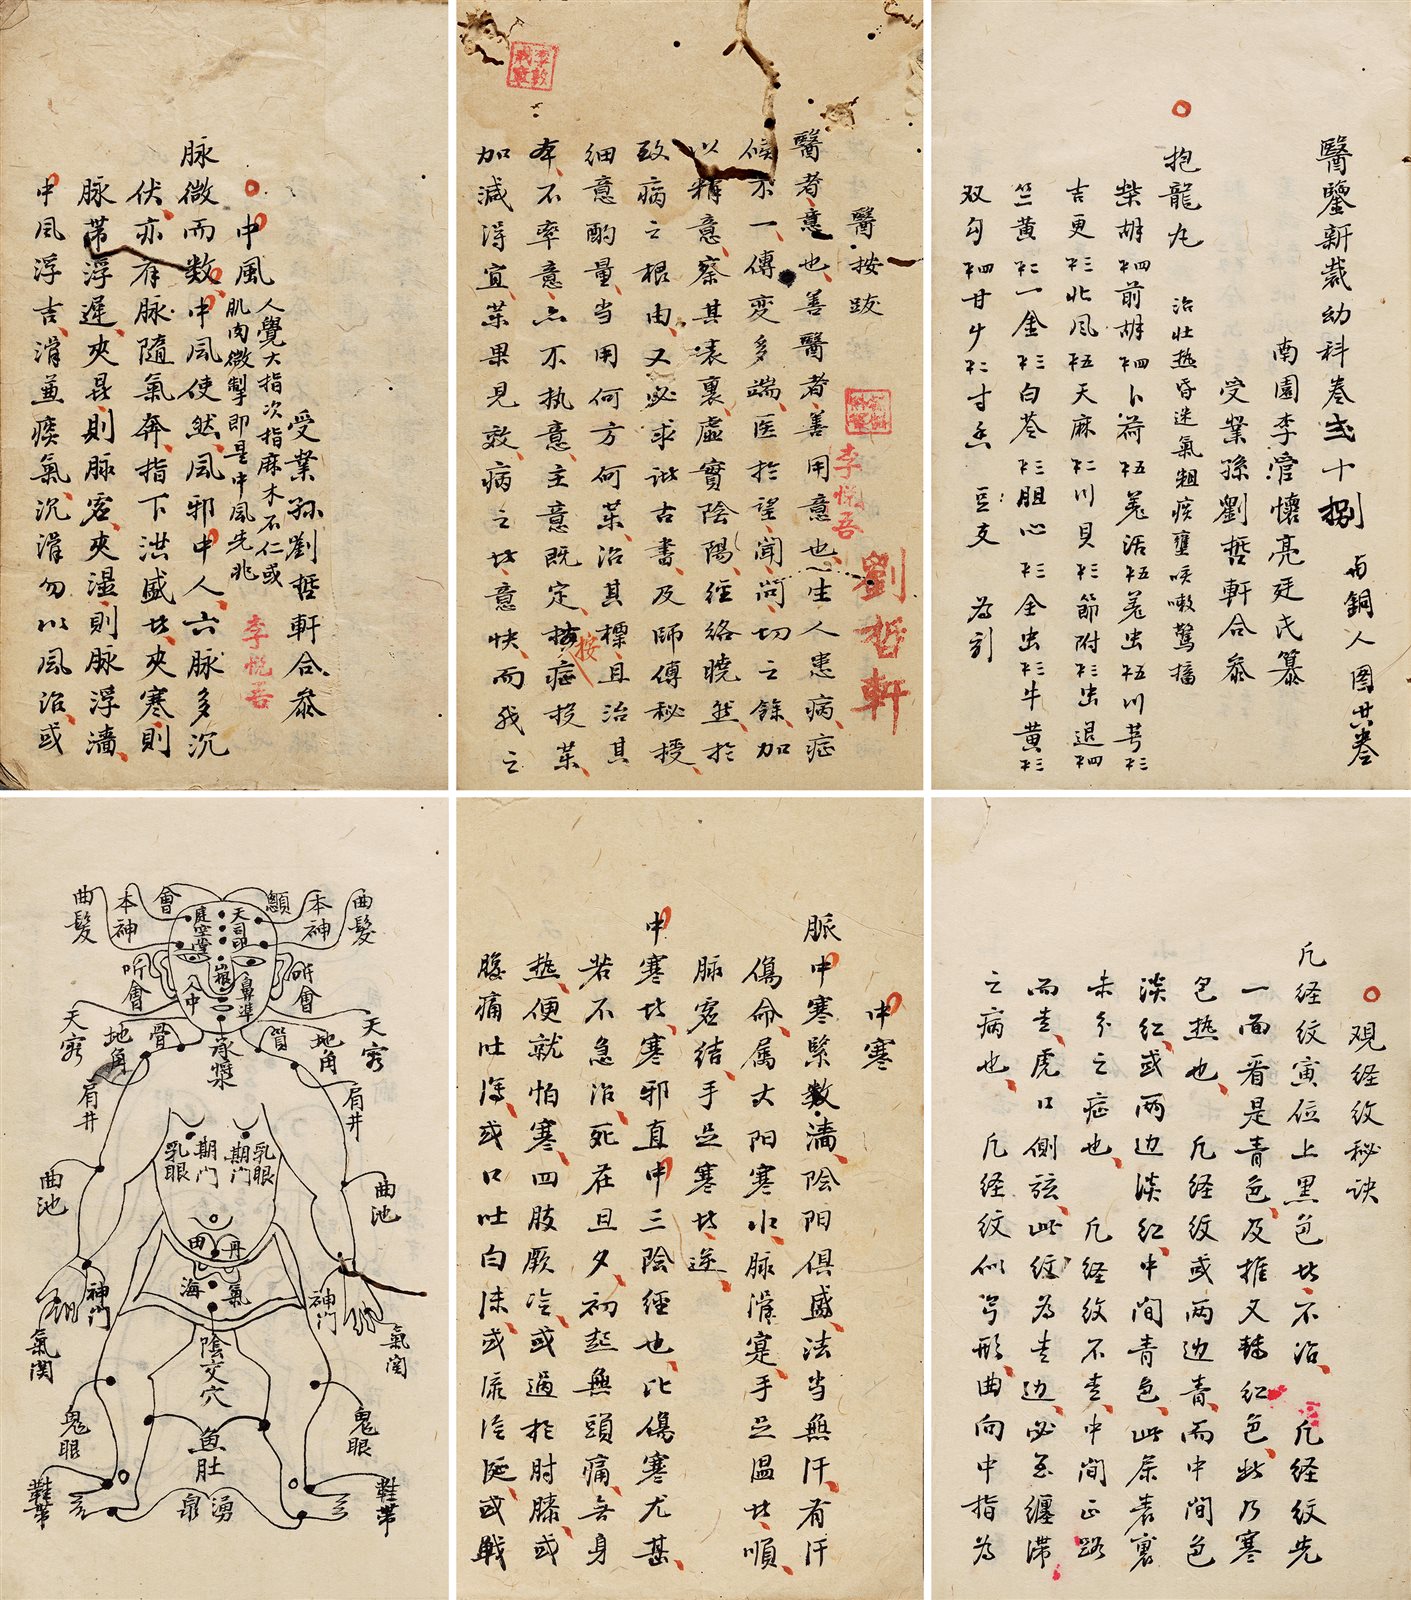 醫鑒新裁幼科卷弍十捌 與銅人图廿卷
南園李瀅懷亮廷氏纂
受業孫劉哲軒合叅
抱龍丸 治壮热昏迷氣粗痰壅咳嗽驚搐
柴胡 四前胡 四卜荷 五羌活 五羌虫 五川芎 三
吉更 三北風 五天麻 二川貝 三節附 三虫退 四
竺黄 二一金 三白苓 三胆心 三全虫 三牛黄 三
双勾 四甘艸 二寸香 豆支 为引
醫按跋
醫者意也善醫者善用意也生人患病症
候不一傳变多端医於望闻问切之餘加
以精意察其表裏虛實陰陽経絡曉然於
致病之根由又必求诸古書及师傅秘授
细意酌量当用何方何薬治其標且治其
本不率意亦不执意主意既定按症投薬
加減得宜薬果見效病之甘意快而我之
李敦
李悦吾
劉哲軒
按
受業孙劉哲軒合叅
中風 人覺大指次指麻木不仁或
肌肉微掣即是中風先兆
李悦吾
脉微而数中風使然風邪中人六脉多沉
伏亦有脉隨氣奔指下洪盛甘夾寒則
脉带浮遲夾暑則脉虚夾濕則脉浮濇
中風浮吉滑兼痰氣沉滑勿以風治或
观经纹秘诀
凡经纹寅位上黑色甘不治 凡经纹先
一面看是青色及推又转红色此乃寒
包热也 凡经纹或两边青而中间色
淡红或两边淡红中间青色此属表裏
未分之症也 凡经纹不走中间正路
而走虎口侧弦此纹为走边必至缠滞
之病也 凡经纹似弓形曲向中指为
中寒
脈中寒緊数濇陰阳俱盛法当無汗有汗
傷命属太阳寒水脉滑寔手足温甘順
脉宻结手足寒甘逆
中寒甘寒邪直中三陰經也比傷寒尤甚
若不急治死在旦夕初起無頭痛無身
热便就怕寒四肢厥冷或過於肘膝或
腹痛吐瀉或口吐白沫或流冷涎或戰
曲髮 本神 會 顖 本神 曲髮
庭 空 堂 天 司 印
听會 山根 听會
人中 鼻準
天窍 地角 骨 承漿 地角 天窍
肩井 肩井
乳眼 期门 期门 乳眼
曲池 曲池
田 丹
海 氣
神门 神门
氣関 氣関
陰交穴
鬼眼 鬼眼
魚肚
鞋带 泉 湧 鞋带